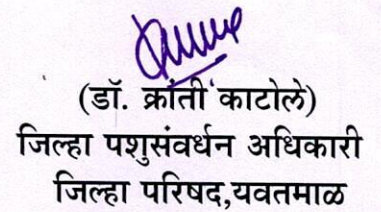 (डॉ. क्रांती काटोले)
जिल्हा पशुसंवर्धन अधिकारी
जिल्हा परिषद,यवतमाळ